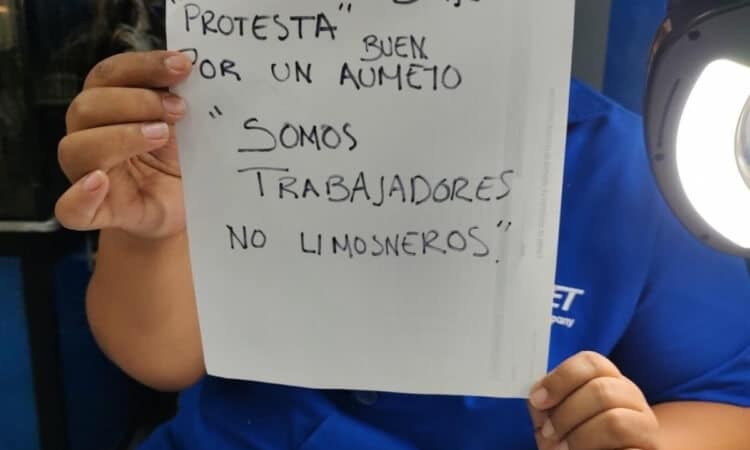 PROTESTA"
POR UN BUEN AUMETO
"SOMOS
TRABAJADORES
NO LIMOSNEROS."
ET
pany